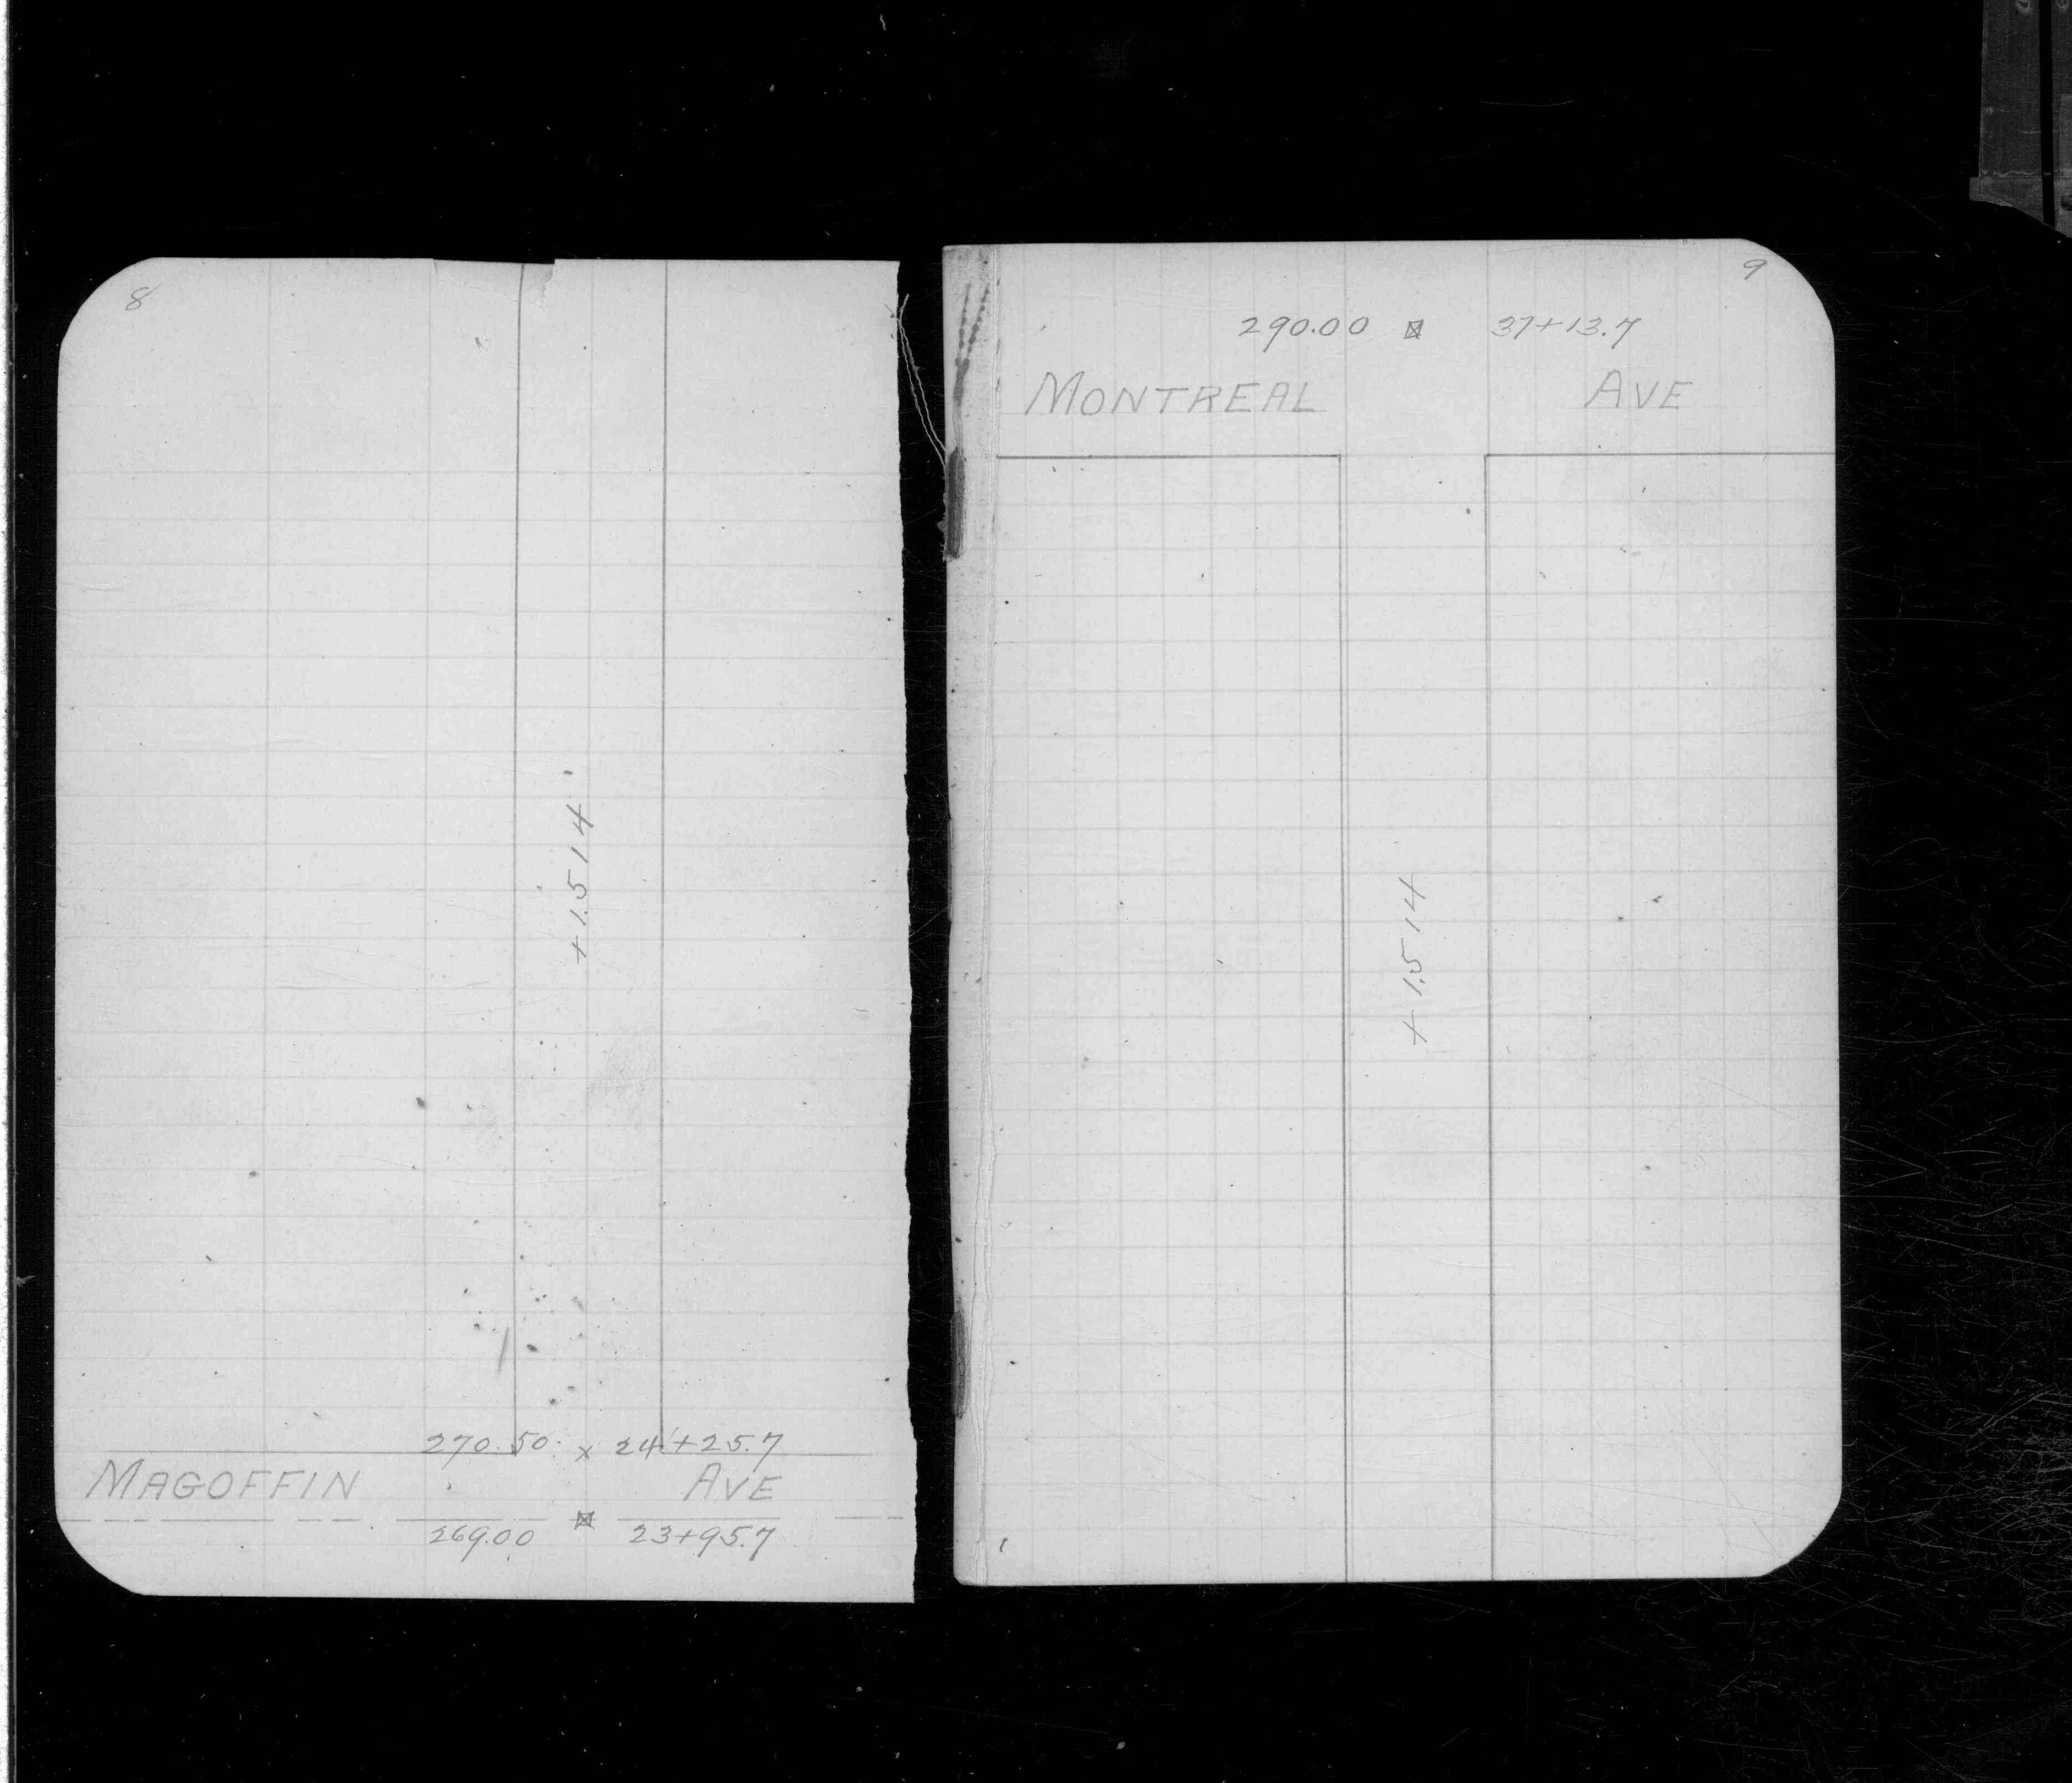 8
+1.514
270.50 x 24+25.7
MAGOFFIN AVE
269.00 23+95.7
9
290.00 37+13.7
MONTREAL AVE
+1.514